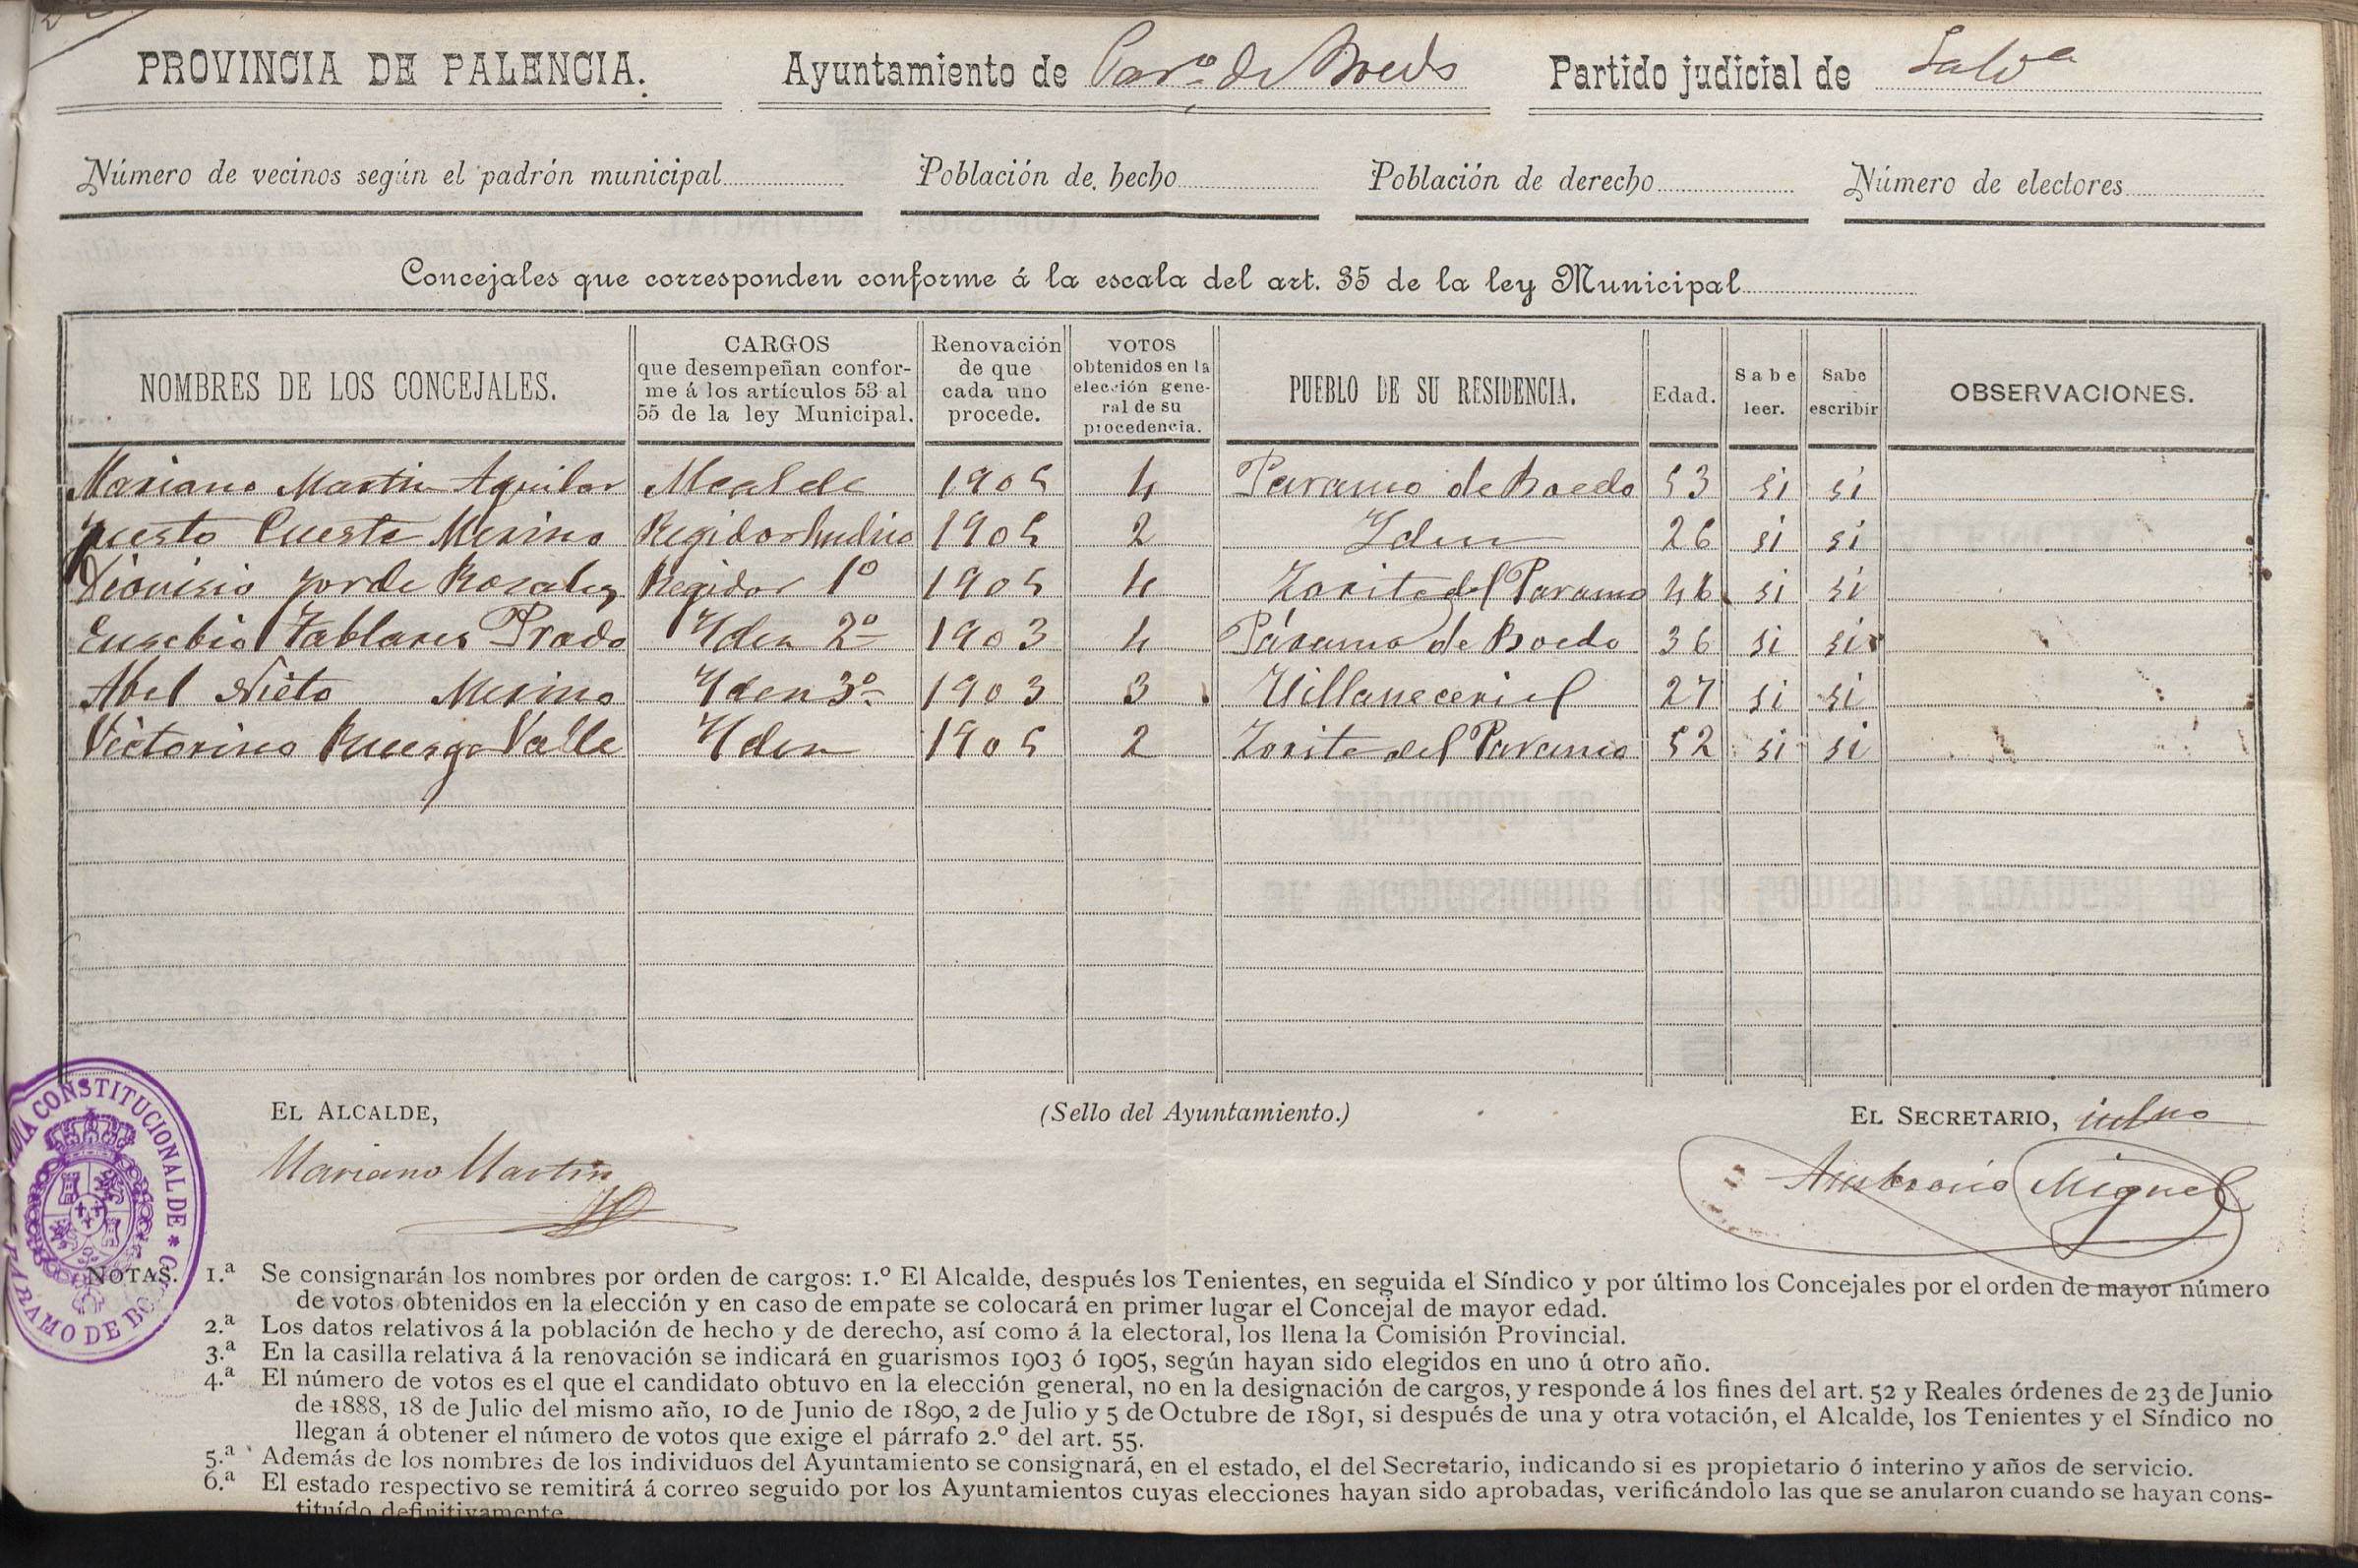 PROVINCIA DE PALENCIA. Ayuntamiento de Par.º de Boedo Partido judicial de Saldª
Número de vecinos según el padrón municipal Población de hecho Población de derecho Número de electores
Concejales que corresponden conforme á la escala del art. 35 de la ley Municipal
NOMBRES DE LOS CONCEJALES. CARGOS que desempeñan conforme á los artículos 53 al 55 de la ley Municipal. Renovación de que cada uno procede. VOTOS obtenidos en la elección general de su procedencia. PUEBLO DE SU RESIDENCIA. Edad. Sabe leer. Sabe escribir OBSERVACIONES.
Mariano Martin Aguilar Alcalde 1905 4 Paramo de Boedo 53 si si
Cuesta Merino Regidor Sindico 1905 2 Yden 26 si si
Dionisio Jorde Rosales Regidor 1º 1905 4 Zorita del Paramo 46 si si
Eusebio Tablares Prado Yden 2º 1903 4 Páramo de Boedo 36 si si
Abel Nieto Merino Yden 3º 1903 3 Villaneceriel 27 si si
Victorino Ruerga Valle Yden 1905 2 Zorita del Paramo 52 si si
EL ALCALDE, (Sello del Ayuntamiento.) EL SECRETARIO, intno
Mariano Martin
Ambrosio Miguel
CONSTITUCIONAL DE * PARAMO DE BOEDO
NOTAS. 1.ª Se consignarán los nombres por orden de cargos: 1.º El Alcalde, después los Tenientes, en seguida el Síndico y por último los Concejales por el orden de mayor número
de votos obtenidos en la elección y en caso de empate se colocará en primer lugar el Concejal de mayor edad.
2.ª Los datos relativos á la población de hecho y de derecho, así como á la electoral, los llena la Comisión Provincial.
3.ª En la casilla relativa á la renovación se indicará en guarismos 1903 ó 1905, según hayan sido elegidos en uno ú otro año.
4.ª El número de votos es el que el candidato obtuvo en la elección general, no en la designación de cargos, y responde á los fines del art. 52 y Reales órdenes de 23 de Junio
de 1888, 18 de Julio del mismo año, 10 de Junio de 1890, 2 de Julio y 5 de Octubre de 1891, si después de una y otra votación, el Alcalde, los Tenientes y el Síndico no
llegan á obtener el número de votos que exige el párrafo 2.º del art. 55.
5.ª Además de los nombres de los individuos del Ayuntamiento se consignará, en el estado, el del Secretario, indicando si es propietario ó interino y años de servicio.
6.ª El estado respectivo se remitirá á correo seguido por los Ayuntamientos cuyas elecciones hayan sido aprobadas, verificándolo las que se anularon cuando se hayan cons-
tituído definitivamente